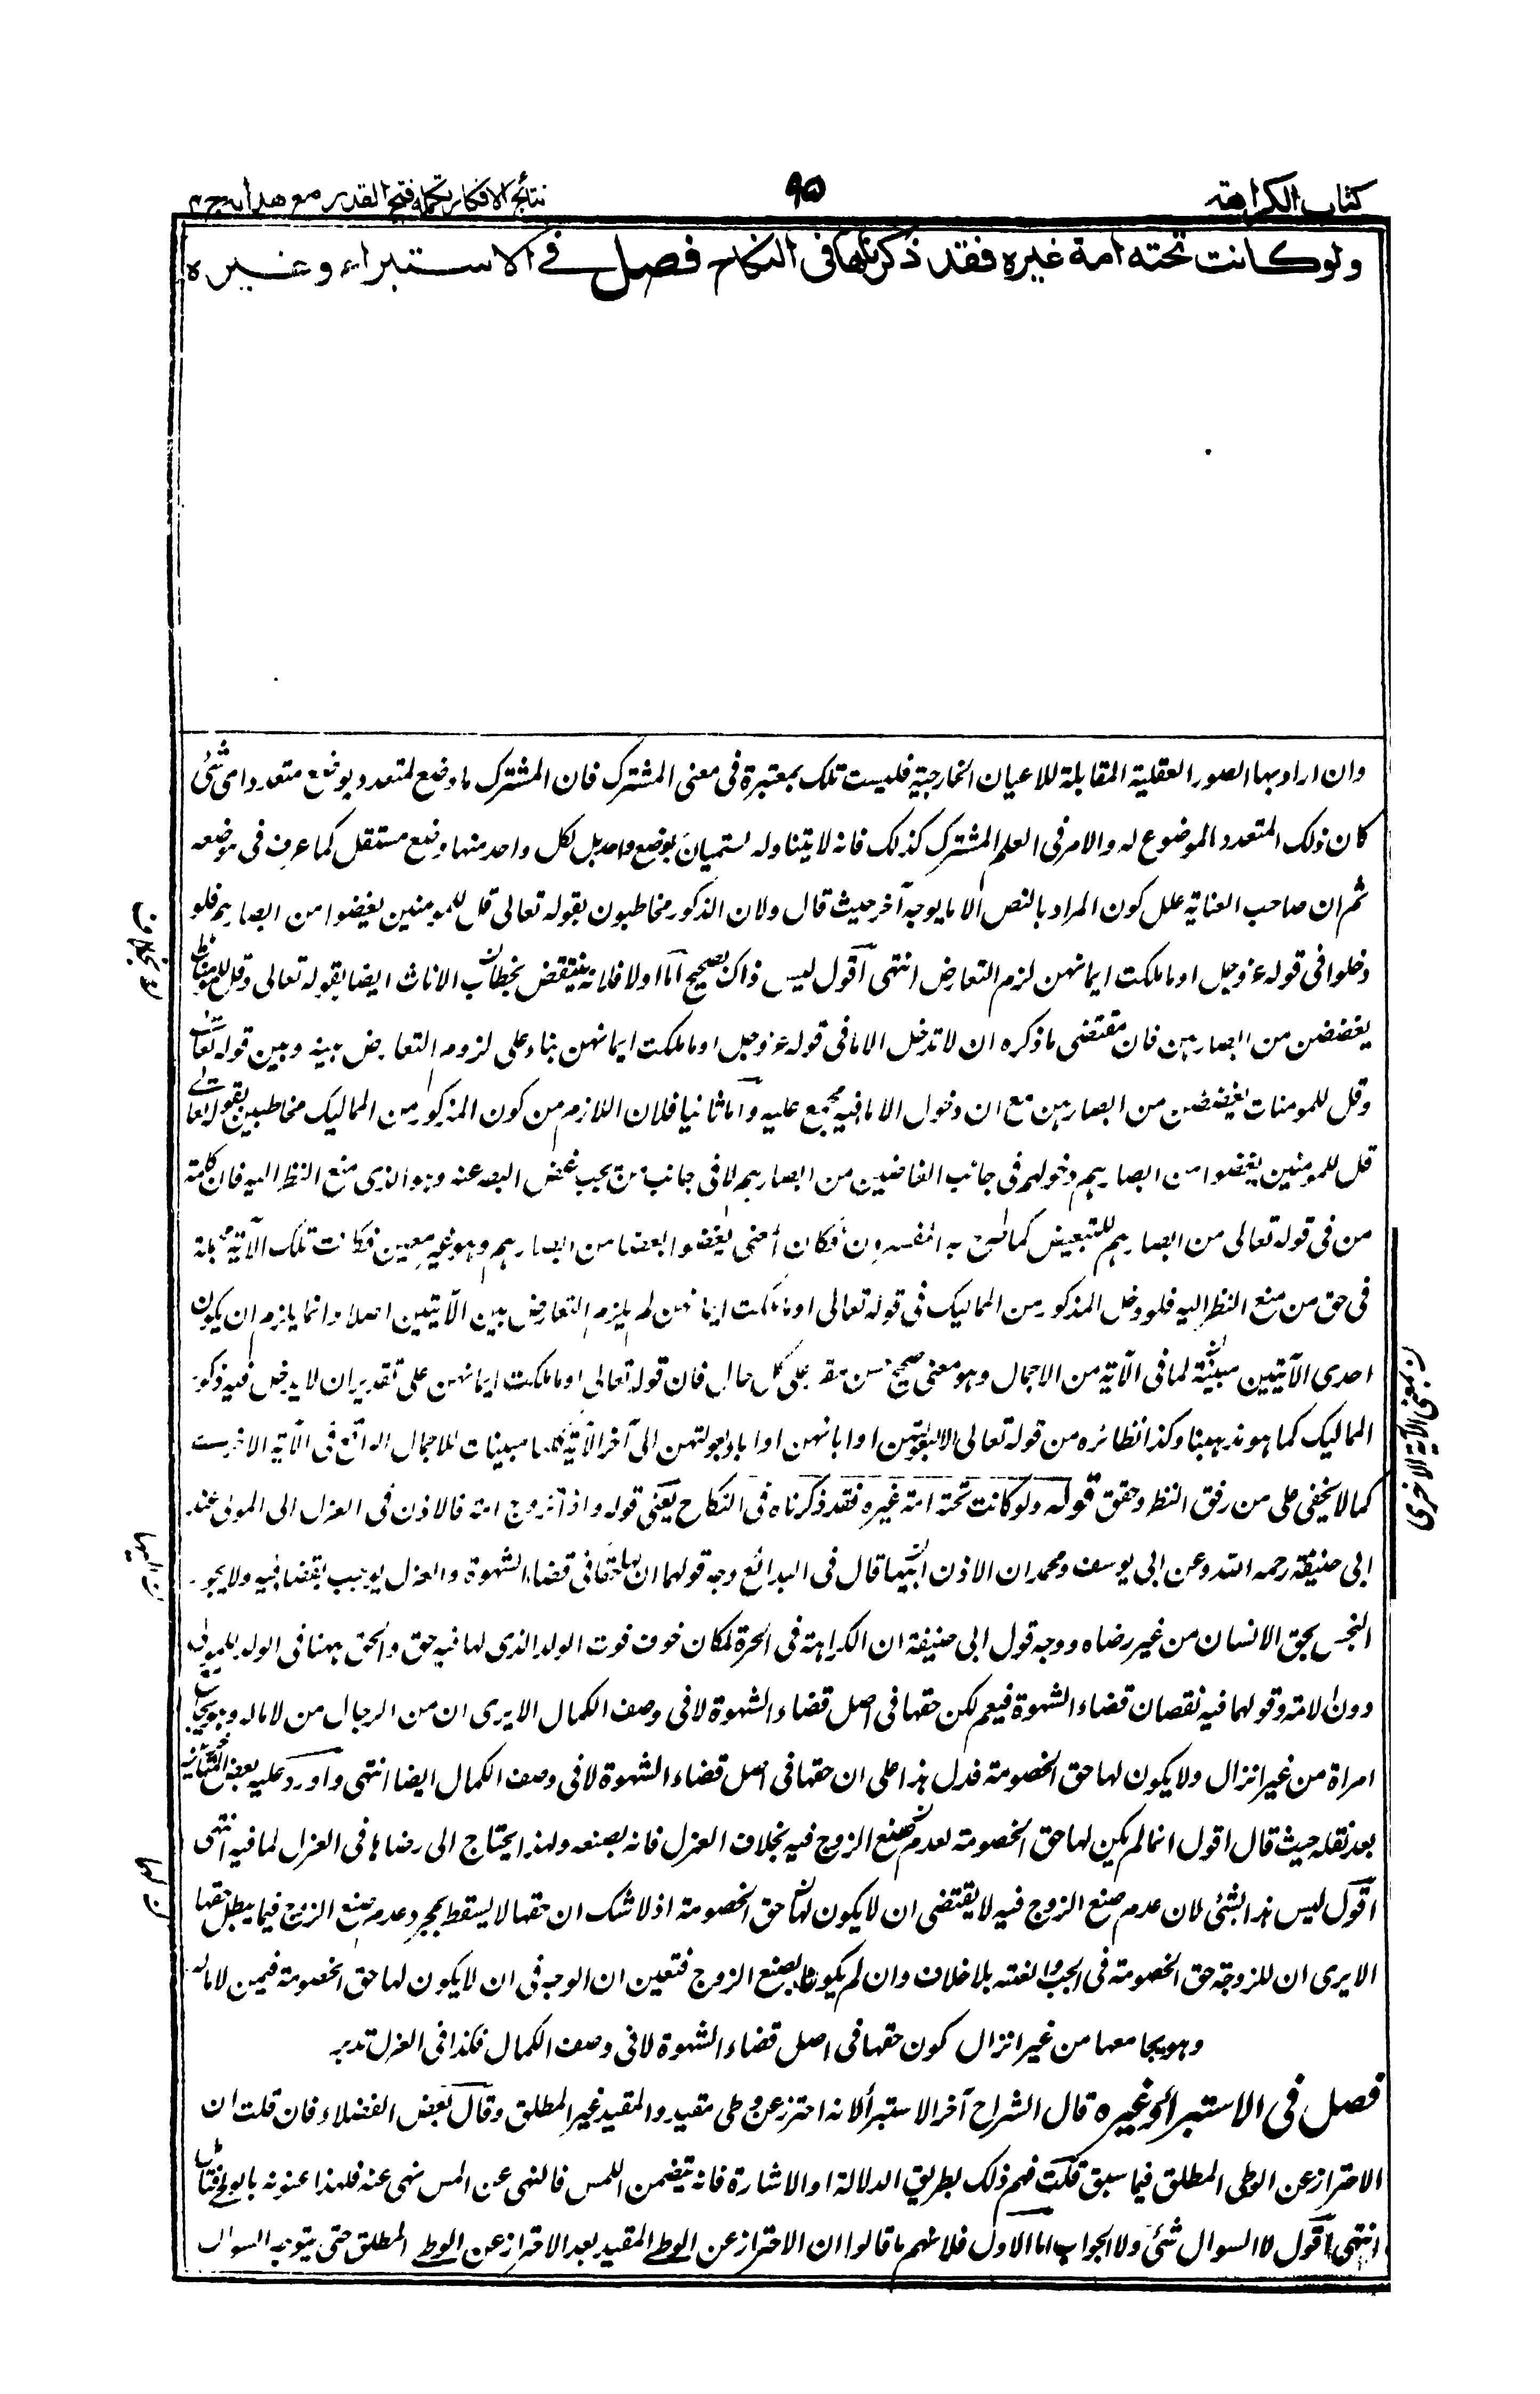 كتاب الكراهية
٩٥
نتائج الافكار تكمله فتح القدير مع هدايه ج ٤
ولو كانت تحته امة غيره فقد ذكرناها فى النكاح فصل فى الاستبراء وغيره
وان اراد بها الصور العقلية المقابلة للاعيان الخارجية فليست تلك بمعتبرة فى معنى المشترك فان المشترك ما وضع لمتعدد بوضع متعدد اى شئ
كان ذلك المتعدد الموضوع له والامر فى العلم المشترك كذلك فانه لا يتناوله لستميان بوضع واحد بل لكل واحد منها وضع مستقل كما عرف فى موضعه
ثم ان صاحب العناية علل كون المراد بالنص الاما بوجه آخر حيث قال ولان الذكور مخاطبون بقوله تعالى قل للمومنين يغضوا من ابصارهم فلو
دخلوا فى قوله عز وجل او ما ملكت ايمانهن لزم التعارض انتهى اقول ليس ذاك بصحيح اما اولا فلانه ينتقض بخطاب الاناث ايضا بقوله تعالى وقل للمومنات
يغضضن من ابصارهن فان مقتضى ما ذكره ان لا تدخل الاما فى قوله عز وجل او ما ملكت ايمانهن بناء على لزوم التعارض بينه وبين قوله تعالى
وقل للمومنات يغضضن من ابصارهن مع ان دخول الاما فيه مجمع عليه واما ثانيا فلان اللازم من كون المذكور من المماليك مخاطبين بقوله تعالى
قل للمومنين يغضوا من ابصارهم دخولهم فى جانب الغاضين من ابصارهم لا فى جانب من يجب غض البصر عنه وهو الذى منع النظر اليه فان كلمة
من فى قوله تعالى من ابصارهم للتبعيض كما صرح به المفسرون فكان المعنى يغضوا بعضا من ابصارهم وهو غير معين فكانت تلك الآية مجملة
فى حق من منع النظر اليه فلو دخل المذكور من المماليك فى قوله تعالى او ما ملكت ايمانهن لم يلزم التعارض بين الآيتين اصلا وانما يلزم ان يكون
احدى الآيتين مبينة لما فى الآية من الاجمال وهو معنى صحيح على كل حال فان قوله تعالى او ما ملكت ايمانهن على تقدير ان لا يدخل فيه ذكور
المماليك كما هو مذهبنا وكذا نظائره من قوله تعالى الا لبعولتهن او ابائهن او اباء بعولتهن الى آخر الآية مبينات للاجمال الواقع فى الآية الاخرى
كما لا يخفى على من رفق النظر وحقق قوله ولو كانت تحته امة غيره فقد ذكرناه فى النكاح يعنى قوله واذا تزوج امة فالاذن فى العزل الى المولى عند
ابى حنيفة رحمه الله وعن ابى يوسف ومحمد ان الاذن اليها قال فى البدائع وجه قولهما ان لها حقا فى قضاء الشهوة والعزل يوجب نقضا فيه ولا يجوز
البخس بحق الانسان من غير رضاه ووجه قول ابى حنيفة ان الكراهة فى الحرة لمكان خوف فوت الولد الذى لها فيه حق والحق ههنا فى الولد للمولى
دون الامة وقولهما فيه نقصان قضاء الشهوة فنعم لكن حقها فى اصل قضاء الشهوة لا فى وصف الكمال الا يرى ان من الرجال من لا ماله وهو يجامع
امراة من غير انزال ولا يكون لها حق الخصومة فدل هذا على ان حقها فى اصل قضاء الشهوة لا فى وصف الكمال ايضا انتهى واورد عليه بعض المتأخرين
بعد نقله حيث قال اقول انما لم يكن لها حق الخصومة لعدم صنع الزوج فيه بخلاف العزل فانه بصنعه ولهذا يحتاج الى رضاها فى العزل لما فيه انتهى
اقول ليس هذا بشئ لان عدم صنع الزوج فيه لا يقتضى ان لا يكون لها حق الخصومة اذ لا شك ان حقها لا يسقط بمجرد عدم صنع الزوج فيما يبطل حقها
الا يرى ان للزوجة حق الخصومة فى الجب والعنة بلا خلاف وان لم يكونا بصنع الزوج فتعين ان الوجه فى ان لا يكون لها حق الخصومة فيمن لا ماله
وهو يجامعها من غير انزال كون حقها فى اصل قضاء الشهوة لا فى وصف الكمال فكذا فى العزل تدبر
فصل فى الاستبراء وغيره قال الشراح آخر الاستبراء لانه احترز عن وطى مقيد والمقيد غير المطلق وقال بعض الفضلاء فان قلت ان
الاحتراز عن الوطى المطلق فيما سبق قلت فهم ذلك بطريق الدلالة او الاشارة فانه يتضمن اللمس فالنهى عن المس نهى عنه فلهذا عنونه بالوطى
انتهى اقول لا السوال شئ ولا الجواب اما الاول فلانهم ما قالوا ان الاحتراز عن الوطى المقيد بعد الاحتراز عن الوطى المطلق حتى يتوجه السوال
فى الآية الاخرى